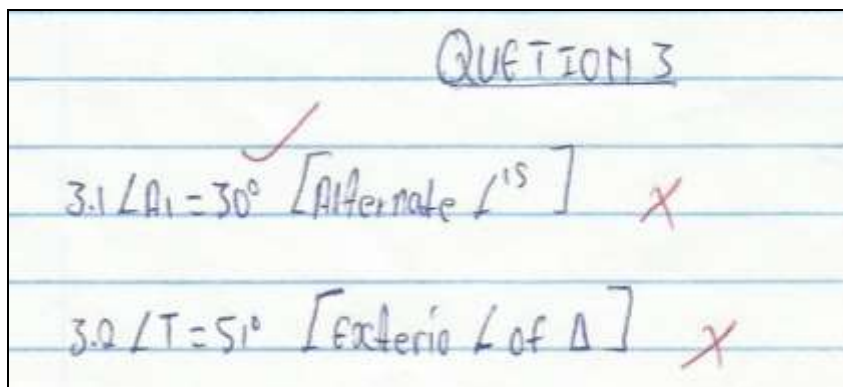 QUETION 3
3.1 ∠A1 = 30° [Alternate ∠'s]
3.2 ∠T = 51° [Exterio ∠ of Δ]